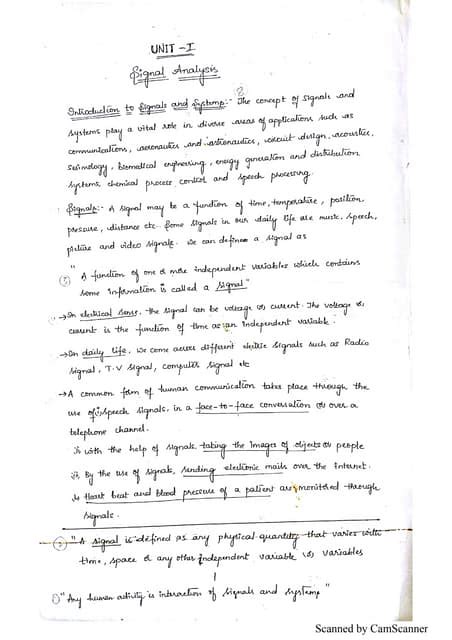 UNIT - I
Signal Analysis
Introduction to Signals and Systems:- The concept of signals and
systems play a vital role in diverse areas of applications such as
communications, aeronautics and astronautics, circuit design, acoustics,
seismology, biomedical engineering, energy generation and distribution
systems, chemical process control and speech processing.
Signals:- A signal may be a function of time, temperature, position,
pressure, distance etc. Some signals in our daily life are music, speech,
picture and video signals. We can define a signal as
" A function of one or more independent variables which contains
some information is called a signal"
→ In electrical sense, the signal can be voltage or current. The voltage or
current is the function of time as an independent variable.
→ In daily life, we come across different electric signals such as Radio
signal, T.V signal, computer signal etc
→ A common form of human communication takes place through the
use of speech signals, in a face-to-face conversation or over a
telephone channel.
With the help of signals, taking the images of objects or people
By the use of signals, sending electronic mails over the Internet.
Heart beat and blood pressure of a patient are monitered through
signals.
"A signal is defined as any physical quantity that varies with
time, space or any other independent variable (or) variables
"Any human activity is interaction of signals and systems"
Scanned by CamScanner